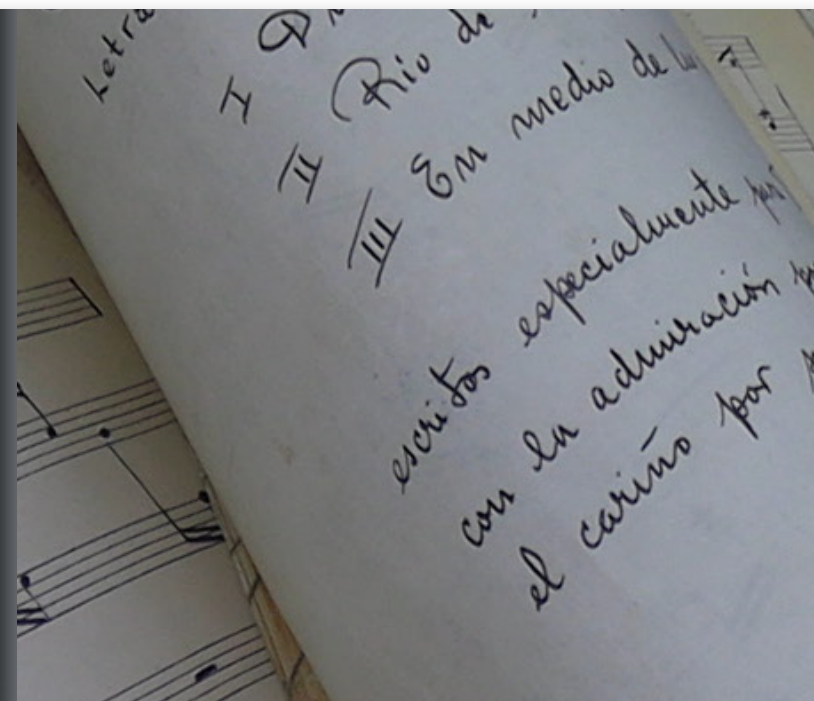 Letra
I
II Rio de
III En medio de
escritos especialmente
con la admiración
el cariño por